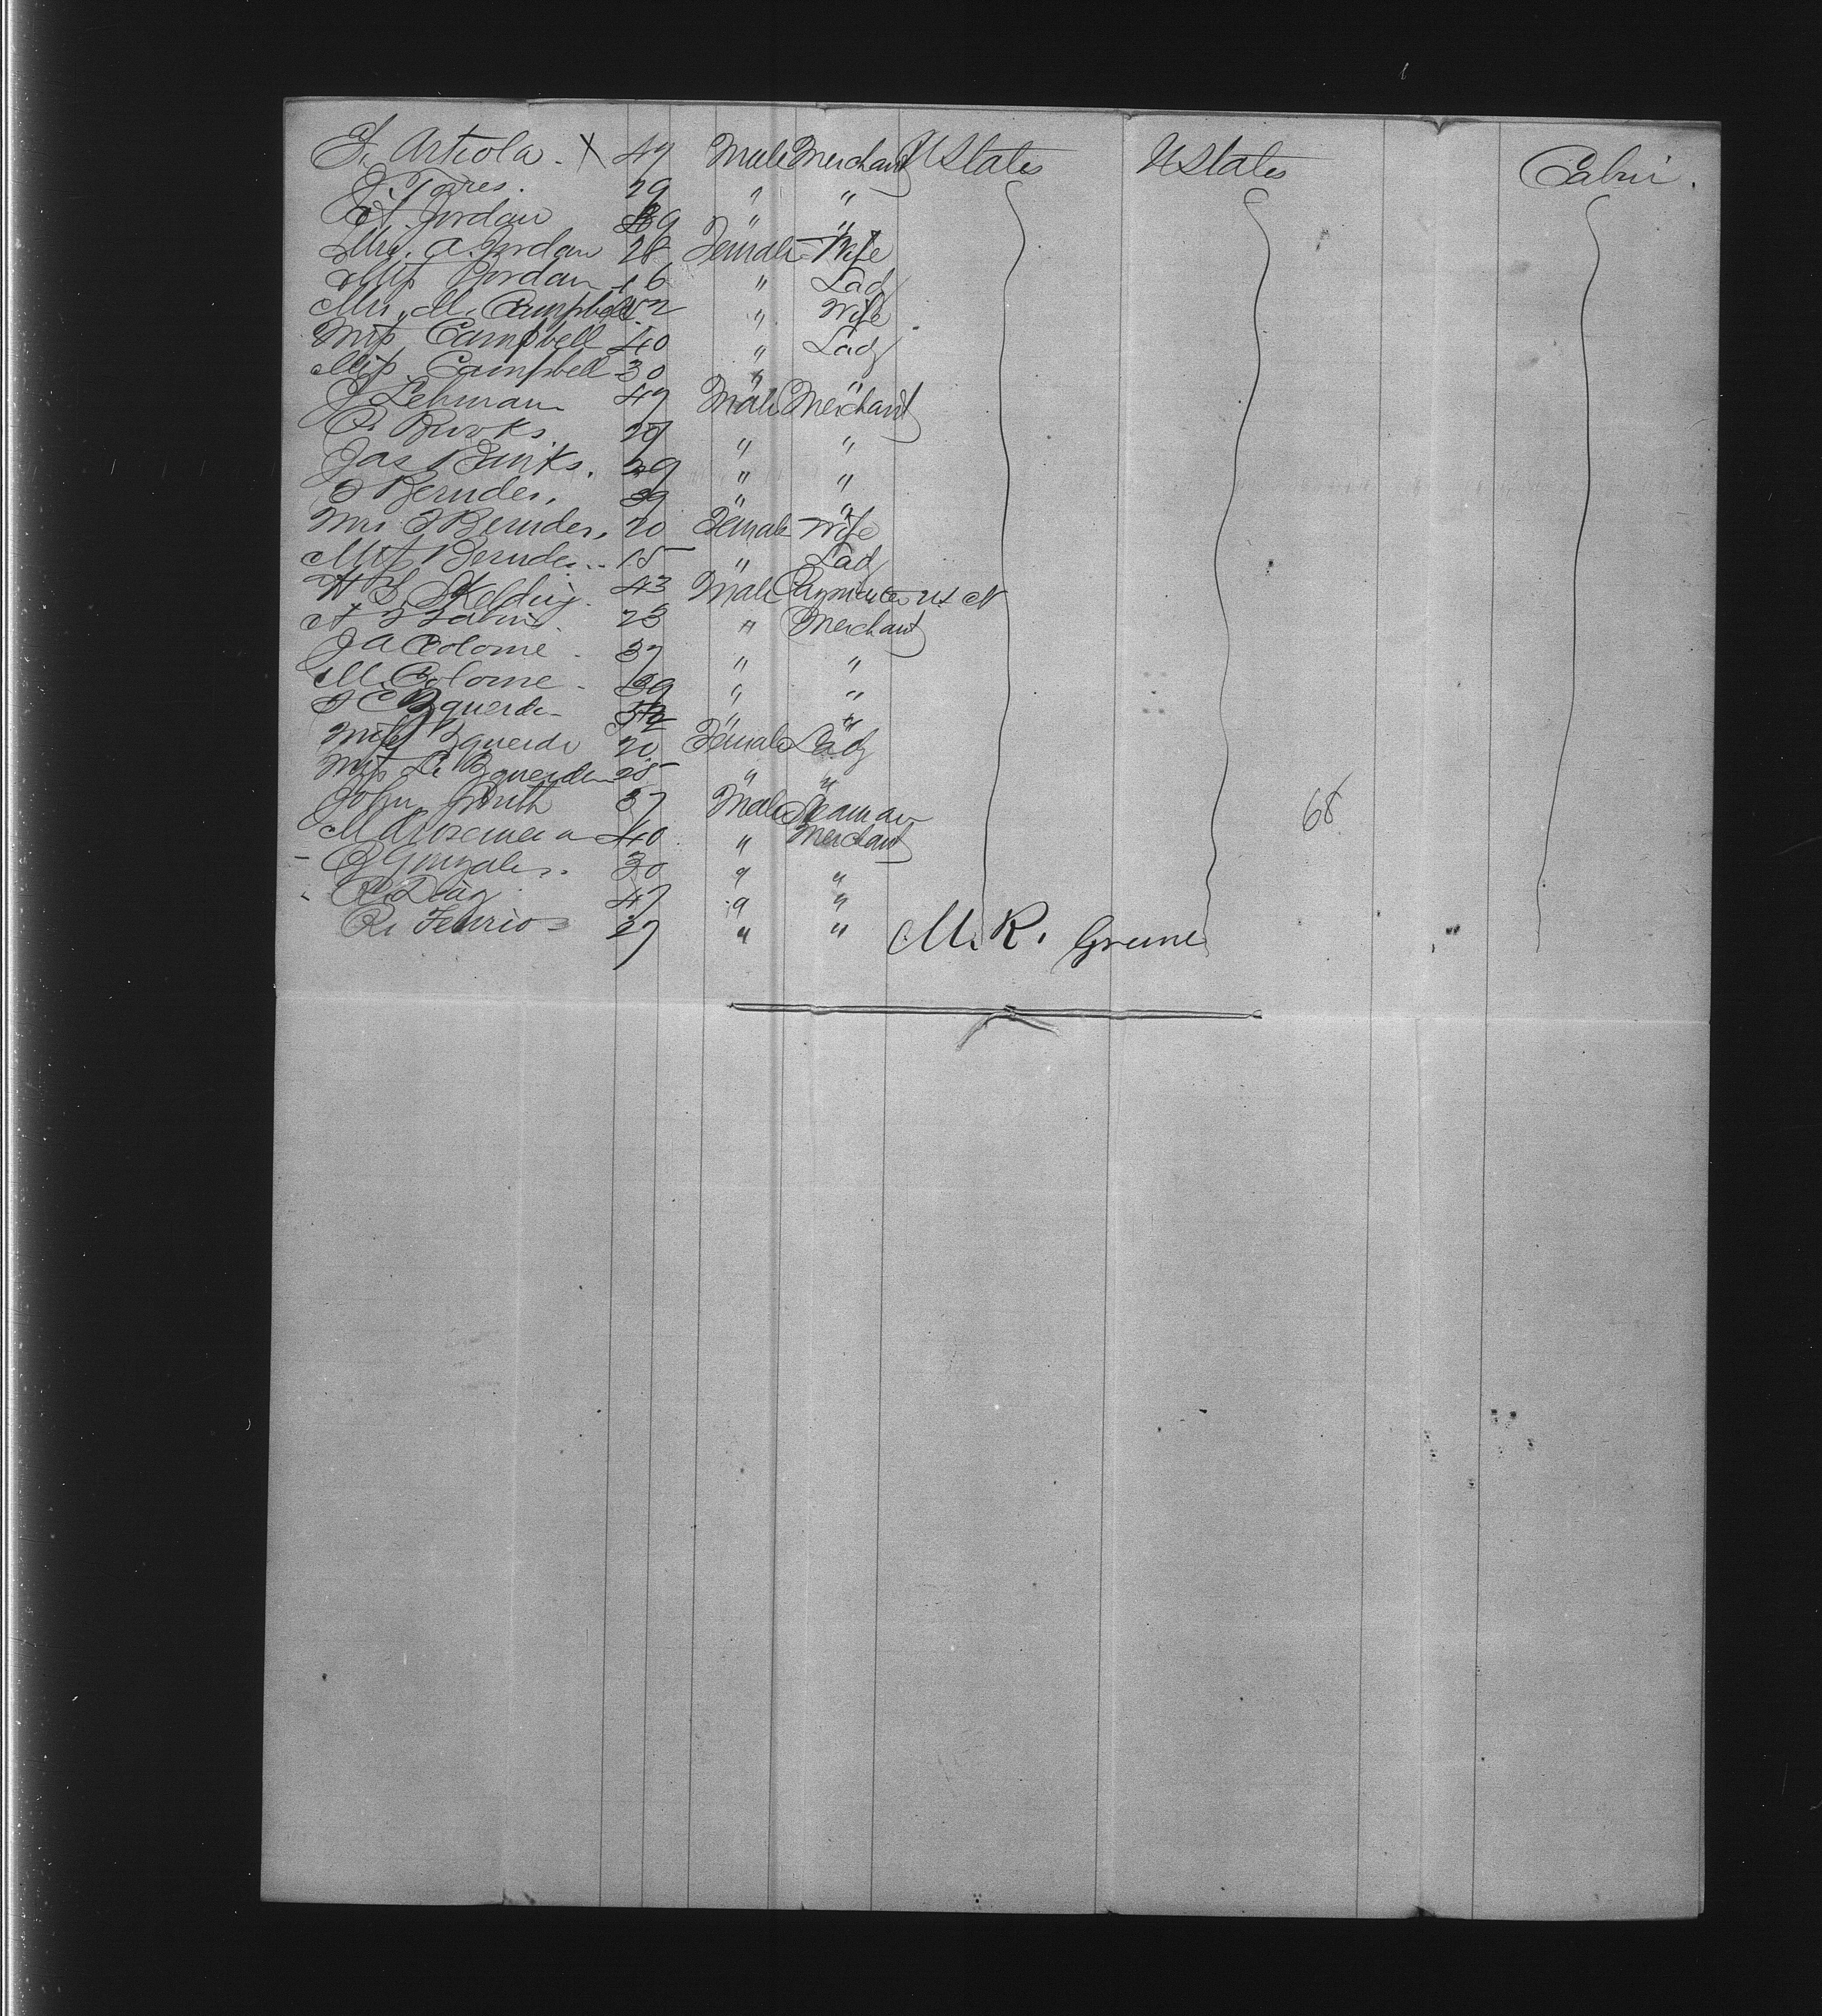 F. Artiola. X 47 Male Merchant U States U States Cabin.
J. Tares. 29 " "
A Jordan 39 " "
Mrs. A. Jordan 28 Female Wife
Miss Jordan 16 " Lady
Mrs. M. Campbell 52 " Wife
Miss Campbell 40 " Lady
Miss Campbell 30 " "
J Lehman 47 Male Merchant
Brooks 29 " "
Jas Binks. 29 " "
Bermdes. 39 " "
Mrs Bermdes. 20 Female Wife
Miss Bermdes.. 15 " Lady
Skelding. 43 Male Paymaster US N
23 " Merchant
J A Colome. 37 " "
M. Colome. 39 " "
" "
Miss 20 Female Lady
Miss 25 " "
John Smith 37 Male Seaman
40 " Merchant 68
Gonzales. 30 " "
R. Diaz 47 " "
R. 27 " " M. R. Greene